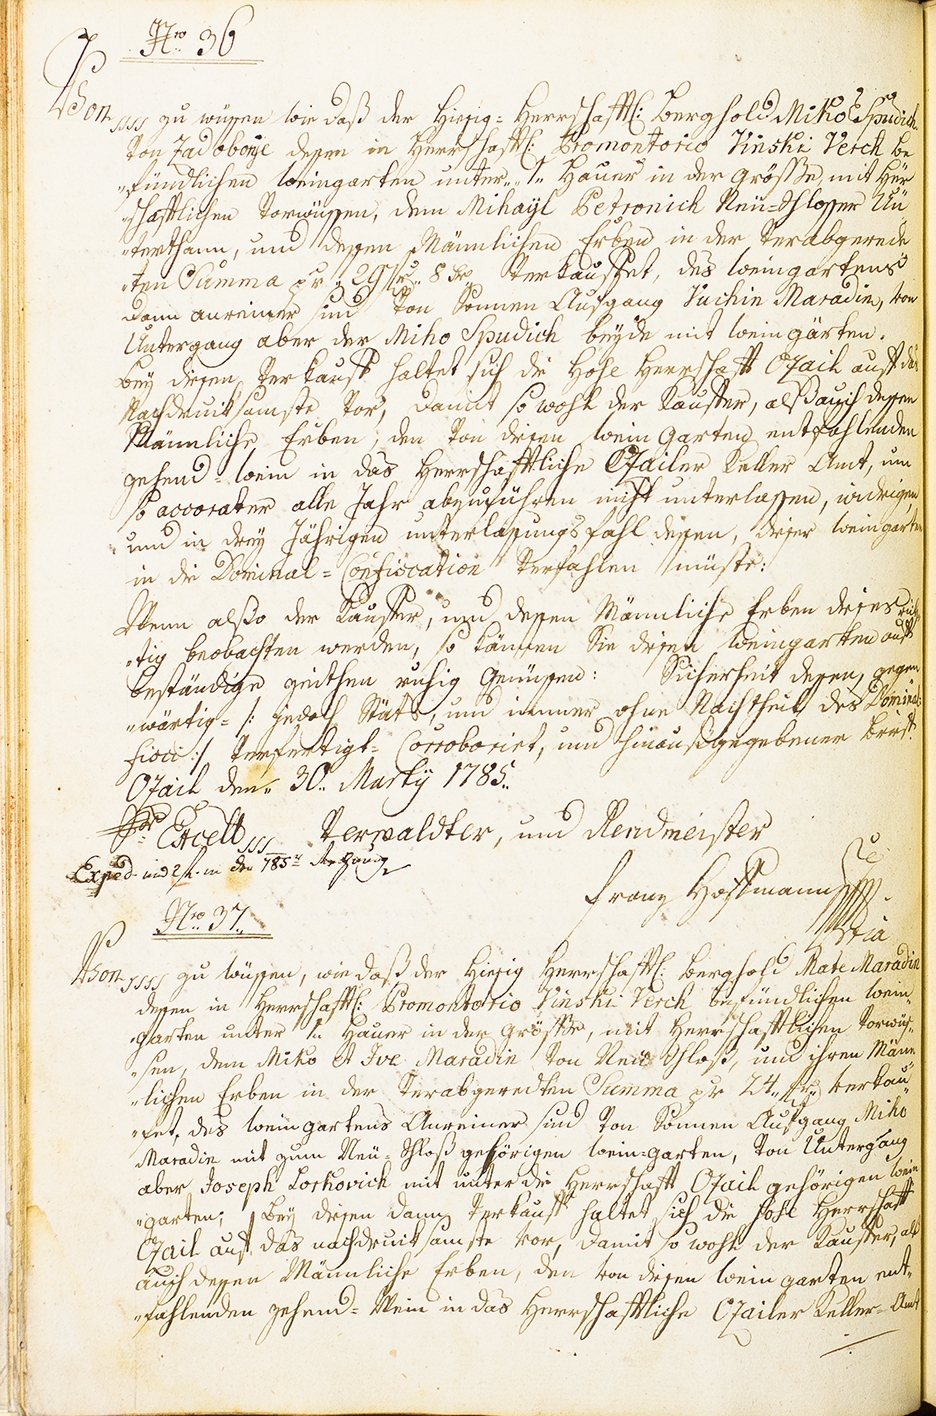 Nro 36
Von zu wüssen wie daß der Hiesig-Herrschafftl: Berghold Miko Spudich
Von Zadobonje dessen in Herrschafftl: Promontorio Vinski Verch be
"fündlichen Weingarten unter "1" Hauer in der Grösse, mit Her
"schafftlichen Vorwüssen, dem Mihayl Petronich Neu-Schlosser Un
"terthann, und dessen Männlichen Erben in der Verabgerede
"ten Summa pr "29 fr" 8 xr Verkauffet, des Weingartens
dann anreiner sind Von Sonnen Aufgang Vuchin Maradin, von
Untergang aber der Miho Spudich beyde mit Weingärten.
Bey diesen Verkauff haltet sich die Hohe Herrschafft Ozail auff das
Nachdruksamste Vor, damit so wohl der Kauffer, alß auch dessen
Männliche Erben, den Von diesen Wein Garten entfahlenden
zehend-Wein in das Herrschafftliche Ozailer Keller Amt, um
so accorater alle Jahr abzuführen nicht unterlassen, widrigen,
und in drey Jährigen unterlassungs fahl dessen, dieser Weingarten
in die Dominal-Confiscation Verfahlen müste:
Wenn alßo der Kauffer, und dessen Männliche Erben dieses rich
"tig beobachten werden, so können Sie diesen Weingarten auff
beständige zeithen ruhig Genüssen: Sicherheit dessen, gegen
"wärtig-/: jedoch Stäts, und immer ohne Nachtheil des Dominal
fisci:/ Verfertigt-Corroboriet, und hinausgegebener Brief.
Ozail den 30" Marty 1785"
Pr Excell Verwaldter, und Rendmeister
Exped. in den 785
Franz Hoffmann
Nro 37"
Von zu Wüssen, wie daß der Hiesig Herrschafftl: Berghold Mate Maradin
dessen in Herrschafftl: Promontorio Vinski Verch befündlichen Wein
"garten unter 1" Hauer in der Grösse, mit Herrschafftlichen Vorwüs"
"sen, dem Miko et Ive Maradin Von Neu Schloß, und ihren Männ
"lichen Erben in der Verabgeredten Summa pr 24" fr" Verkau"
"fet, des Weingartens Anreiner sind Von Sonnen Aufgang Miko
Maradin mit zum Neu-Schloß gehörigen Wein-garten, Von Untergang
aber Joseph Lorkovich mit unter die Herrschafft Ozail gehörigen Wein
"garten; Bey diesen dann Verkauff haltet sich die hohe Herrschafft
Ozail auff das nachdruksamste vor, damit so wohl der Kauffer, alß
auch dessen Männliche Erben, den von diesen Weingarten ent"
"fahlenden zehend-Wein in das Herrschafftliche Ozailer Keller-Amt